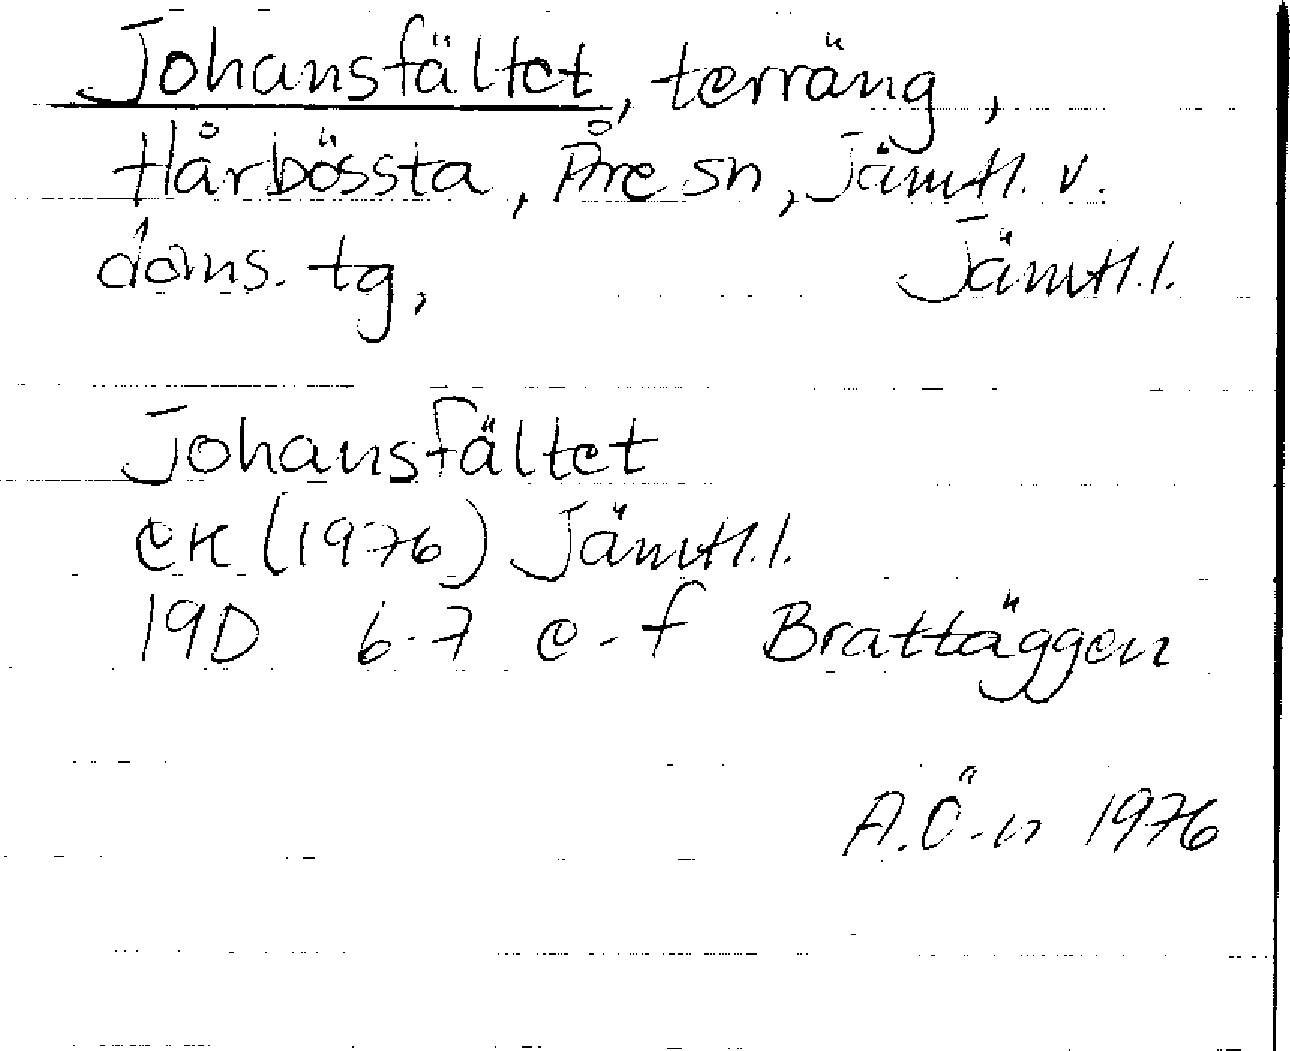 Johansfältet, terräng,
Hårbössta, Åre sn, Jämtl. v.
doms. tg, Jämtl.l.
Johansfältet
EK (1976) Jämtl.l.
19D 6-7 e-f Brattäggen
A.Ö-n 1976